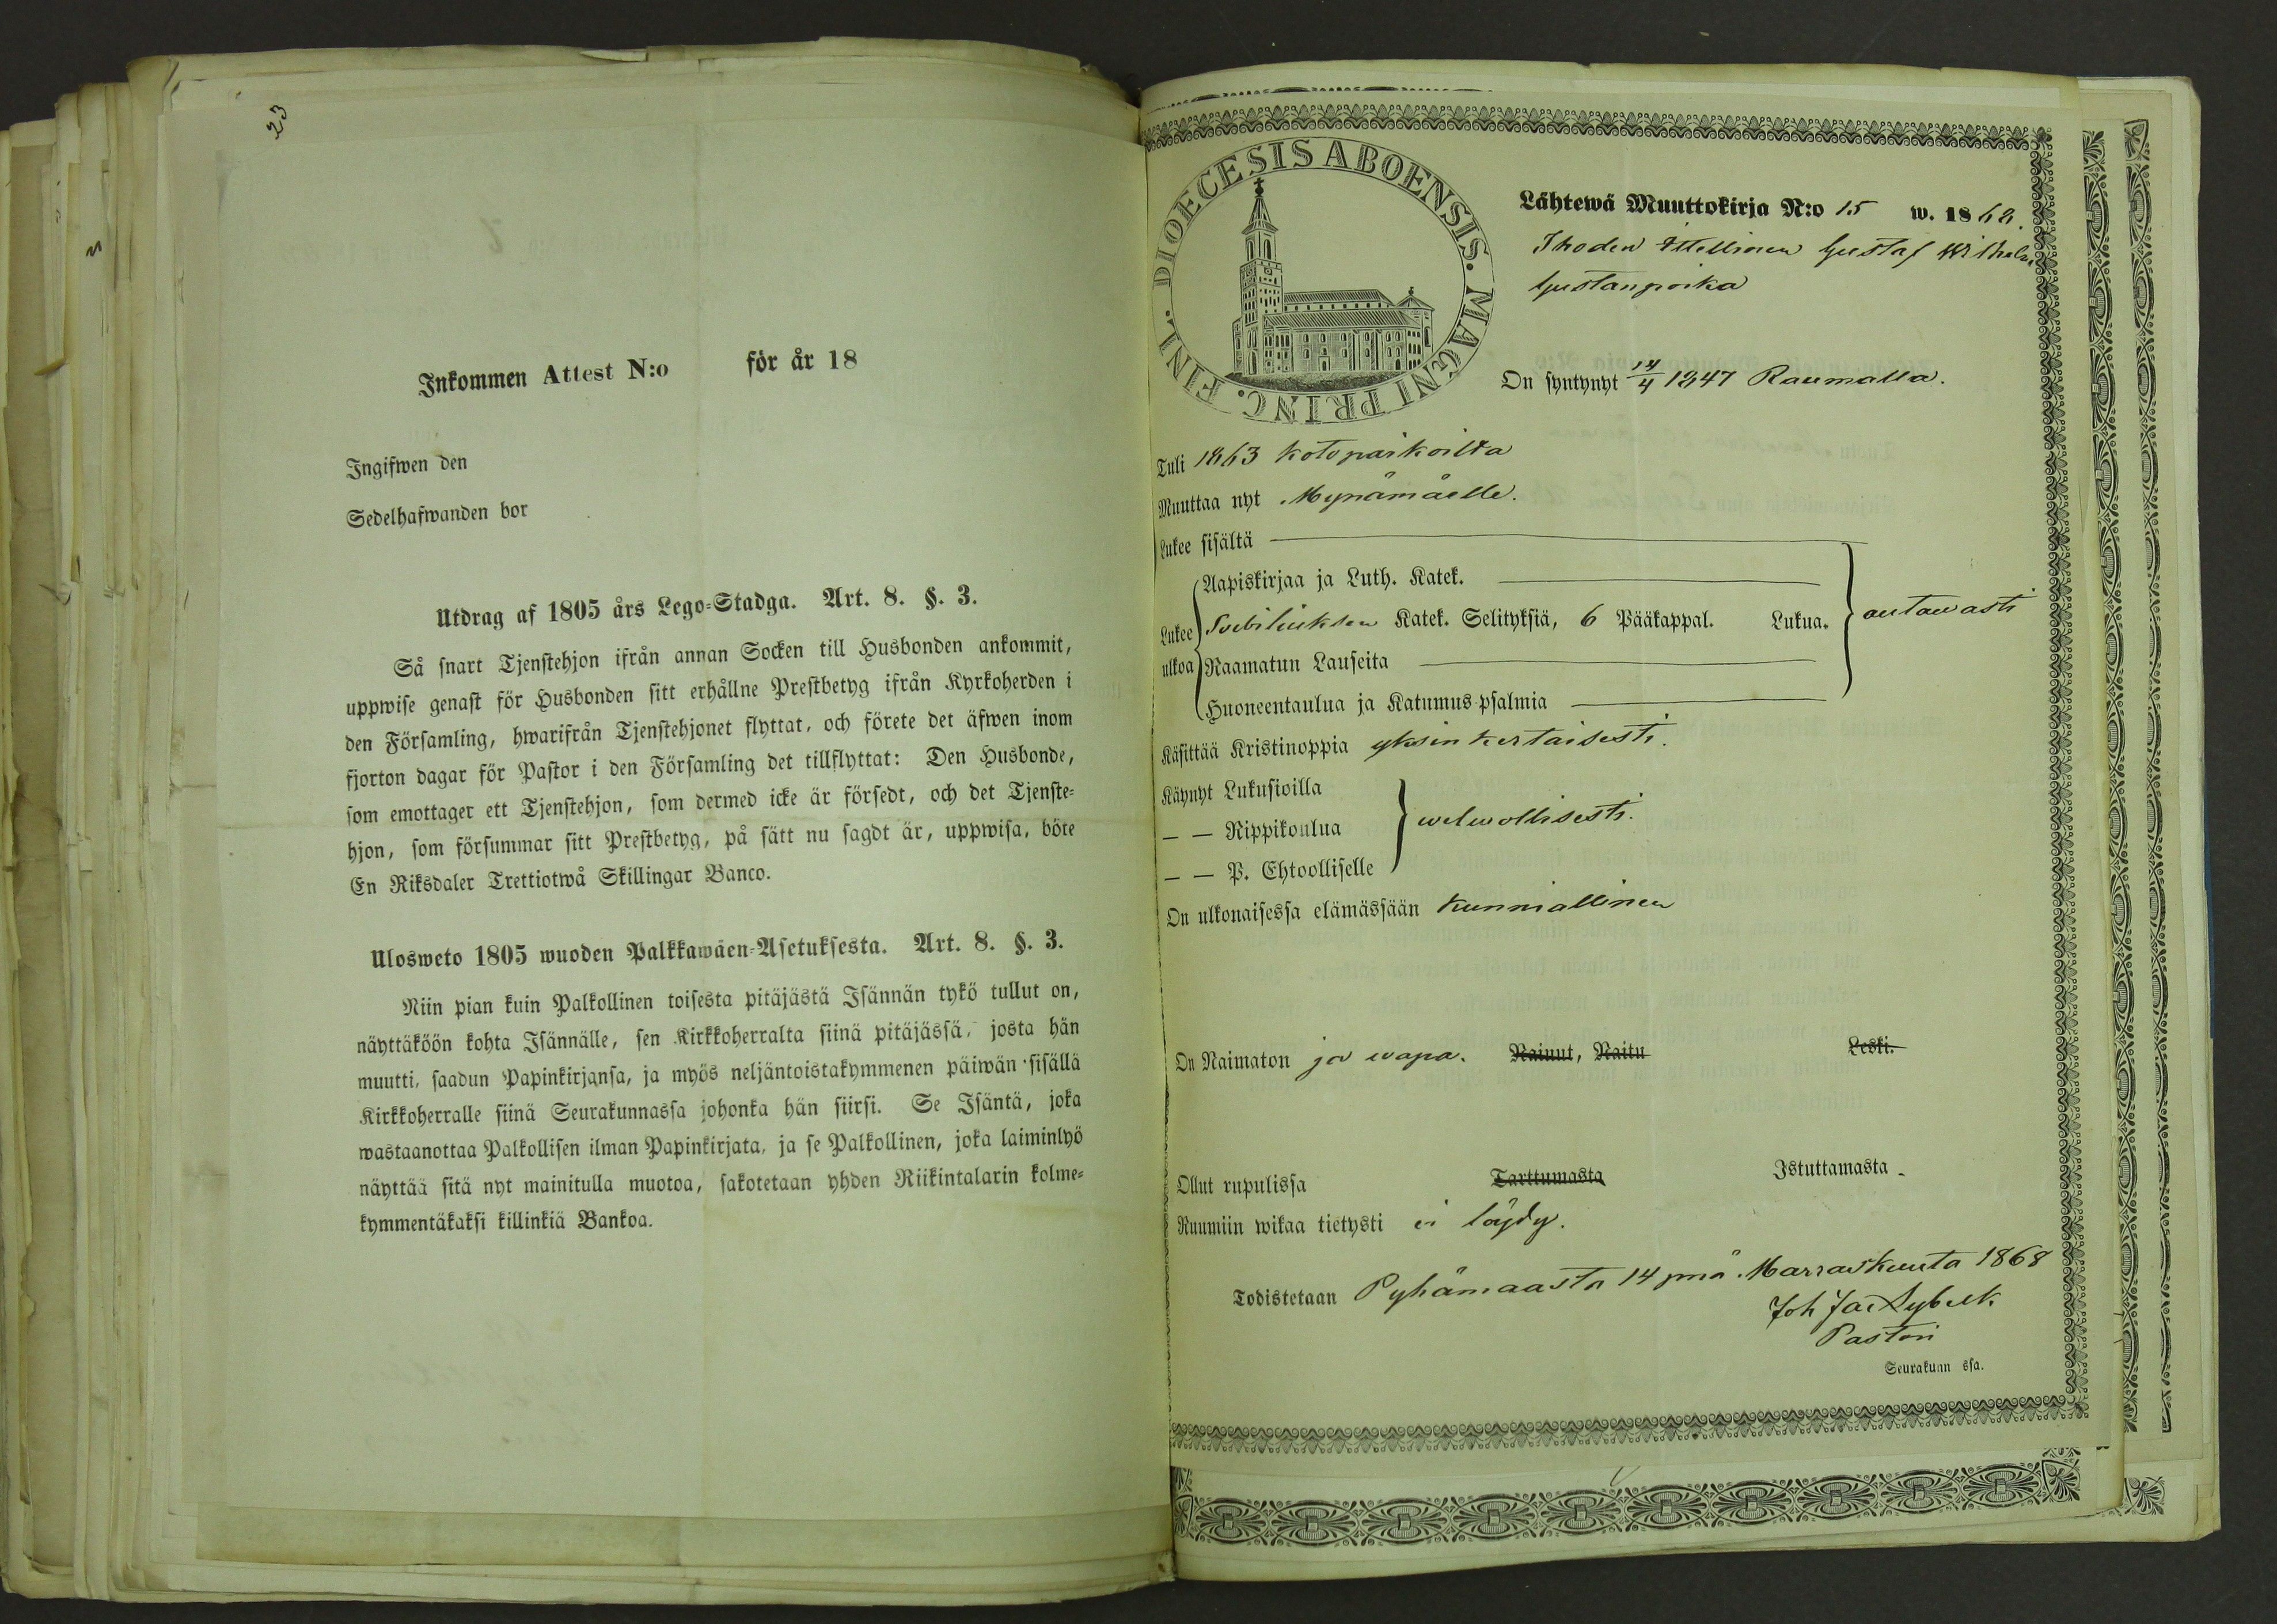 23
Inkommen Attest N:o för år 18
Ingifwen den
Sedelhafwanden bor
Utdrag af 1805 års Lego-Stadga. Art. 8. §. 3.
Så snart Tjenstehjon ifrån annan Socken till Husbonden ankommit,
uppwise genast för Husbonden sitt erhållne Prestbetyg ifrån Kyrkoherden i
den Församling, hwarifrån Tjenstehjonet flyttat, och förete det äfwen inom
fjorton dagar för Pastor i den Församling det tillflyttat: Den Husbonde,
som emottager ett Tjenstehjon, som dermed icke är försedt, och det Tjenste-
hjon, som försummar sitt Prestbetyg, på sätt nu sagdt är, uppwisa, böte
En Riksdaler Trettiotwå Skillingar Banco.
Ulosweto 1805 wuoden Palkkawäen-Asetuksesta. Art. 8. §. 3.
Niin pian kuin Palkollinen toisesta pitäjästä Isännän tykö tullut on,
näyttäköön kohta Isännälle, sen Kirkkoherralta siinä pitäjässä, josta hän
muutti, saadun Papinkirjansa, ja myös neljäntoistakymmenen päiwän sisällä
Kirkkoherralle siinä Seurakunnassa johonka hän siirsi. Se Isäntä, joka
wastaanottaa Palkollisen ilman Papinkirjata, ja se Palkollinen, joka laiminlyö
näyttää sitä nyt mainitulla muotoa, sakotetaan yhden Riikintalarin kolme-
kymmentäkaksi killinkiä Bankoa.
DIOECESIS ABOENSIS. MAGNI PRINC. FINL.
Lähtewä Muuttokirja N:o 15 w. 1868.
Ihoden Itellinen Gustaf Wilhelm
Gustanpoika
On syntynyt 14/4 1847 Raumalla.
Tuli 1863 kotopaikoilta
Muuttaa nyt Mynämäelle.
Lukee sisältä
Aapiskirjaa ja Luth. Katek.
Lukee Svebiliuksen Katek. Selityksiä, 6 Pääkappal. Lukua. autawasti
ulkoa Raamatun Lauseita
Huoneentaulua ja Katumus-psalmia
Käsittää Kristinoppia yksinkertaisesti.
Käynyt Lukusioilla
— — Rippikoulua welwollisesti.
— — P. Ehtoolliselle
On ulkonaisessa elämässään kunniallinen
On Naimaton ja wapa. Nainut, Naitu Leski.
Ollut rupulissa Tarttumasta Istuttamasta
Ruumiin wikaa tietysti ei löydy.
Todistetaan Pyhämaasta 14 pnä Marraskuuta 1868
Joh Jac Nybeck
Pastori
Seurakunn ssa.